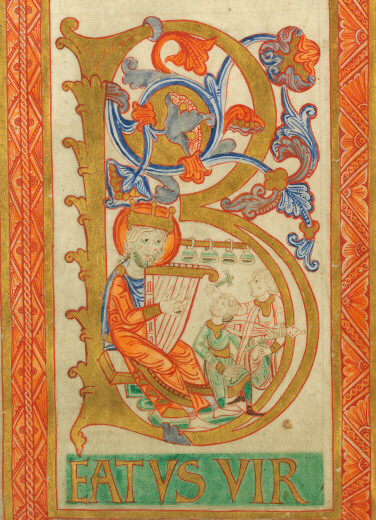 B
EATVS VIR